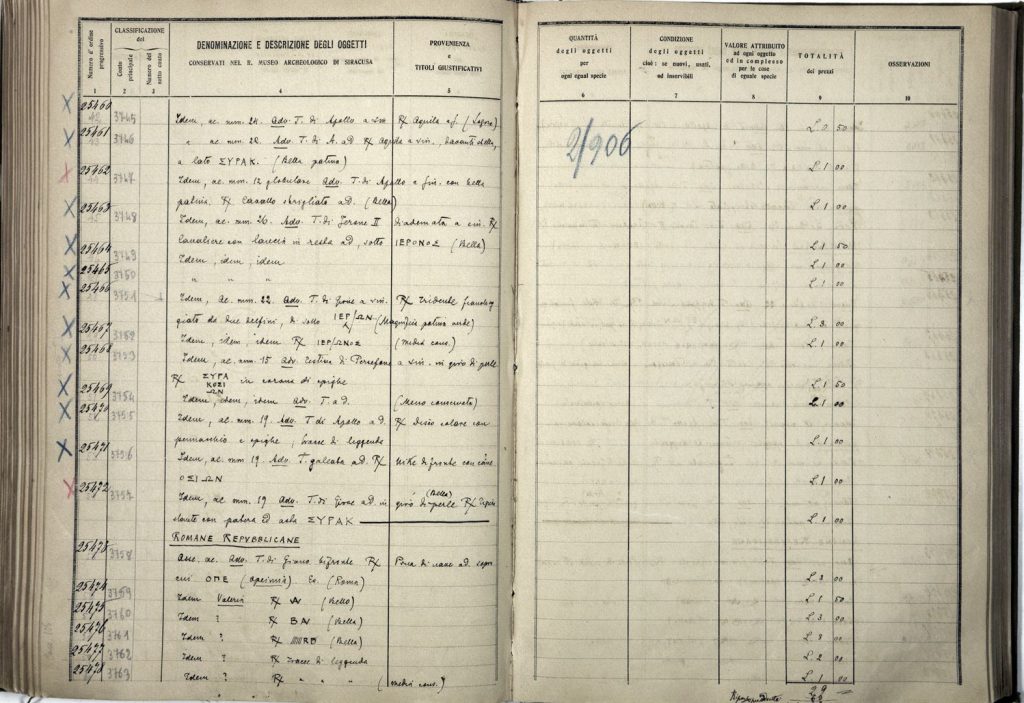 Numero d'ordine progressivo
CLASSIFICAZIONE del
Conto principale
Numero del sotto conto
DENOMINAZIONE E DESCRIZIONE DEGLI OGGETTI
CONSERVATI NEL R. MUSEO ARCHEOLOGICO DI SIRACUSA
PROVENIENZA
e
TITOLI GIUSTIFICATIVI
QUANTITÀ
degli oggetti
per
ogni egual specie
CONDIZIONE
degli oggetti
cioè: se nuovi, usati,
od inservibili
VALORE ATTRIBUITO
ad ogni oggetto
ed in complesso
per le cose
di eguale specie
TOTALITÀ
dei prezzi
OSSERVAZIONI
1 2 3 4 5 6 7 8 9 10
2/906
25460 3745 Idem, ae. mm. 24. Adv. T. di Apollo a sin. R/ Aquila a s. L. 2 50
25461 3746 " ae. mm. 20. Adv. T. di A. a d. R/ Aquila a sin., davanti stella,
a lato ΣΥΡΑΚ. (Bella patina) L. 1 00
25462 3747 Idem, ae. mm. 12 globulare Adv. T. di Apollo a sin. con bella
patina. R/ Cavallo sbrigliato a d. (Bella) L. 1 00
25463 3748 Idem, ae. mm. 26. Adv. T. di Jerone II diademata a sin. R/
Cavaliere con lancia in resta a d., sotto ΙΕΡΟΝΟΣ (Bella) L. 1 50
25464 3749 Idem, idem, idem L. 1 00
25465 3750 " " " L. 1 00
25466 3751 Idem, ae. mm. 22. Adv. T. di Giove a sin. R/ Tridente fiancheg
giato da due delfini, di sotto ΙΕΡ/ΩΝ (Magnifica patina verde) L. 3. 00
25467 3752 Idem, idem, idem R/ ΙΕΡ/ΩΝΟΣ (Media cons.) L. 1 00
25468 3753 Idem, ae. mm. 15 Adv. Testina di Persefone a sin. in giro di perle
R/ ΣΥΡΑ ΚΟΣΙ ΩΝ in corona di spighe L. 1 50
25469 3754 Idem, idem, idem Adv. T. a d. (Meno conservata) L. 1 00
25470 3755 Idem, ae. mm. 19. Adv. T. di Apollo a d. R/ Disco solare con
pennacchio e spighe, tracce di leggenda L. 1 00
25471 3756 Idem, ae. mm. 19. Adv. T. galeata a d. R/ Nike di fronte con cane
ΟΣΙΩΝ L. 1 00
25472 3757 Idem, ae. mm. 19 Adv. T. di Giove a d. in giro di perle (Bella) R/
stante con patera ed asta ΣΥΡΑΚ L. 1 00
ROMANE REPUBBLICANE
25473 3758 Asse. ae. Adv. T. di Giano bifronte R/ Prora di nave a d. sopra
cui OΠΕ (Opeimia). Es. (Roma) L. 3 00
25474 3759 Idem Valeria R/ (Bello) L. 1 50
25475 3760 Idem ? R/ (Bella) L. 3 00
25476 3761 Idem ? R/ (Bella) L. 3 00
25477 3762 Idem ? R/ tracce di leggenda L. 2 00
25478 3763 Idem ? R/ " " " (Media cons.) L. 1 00